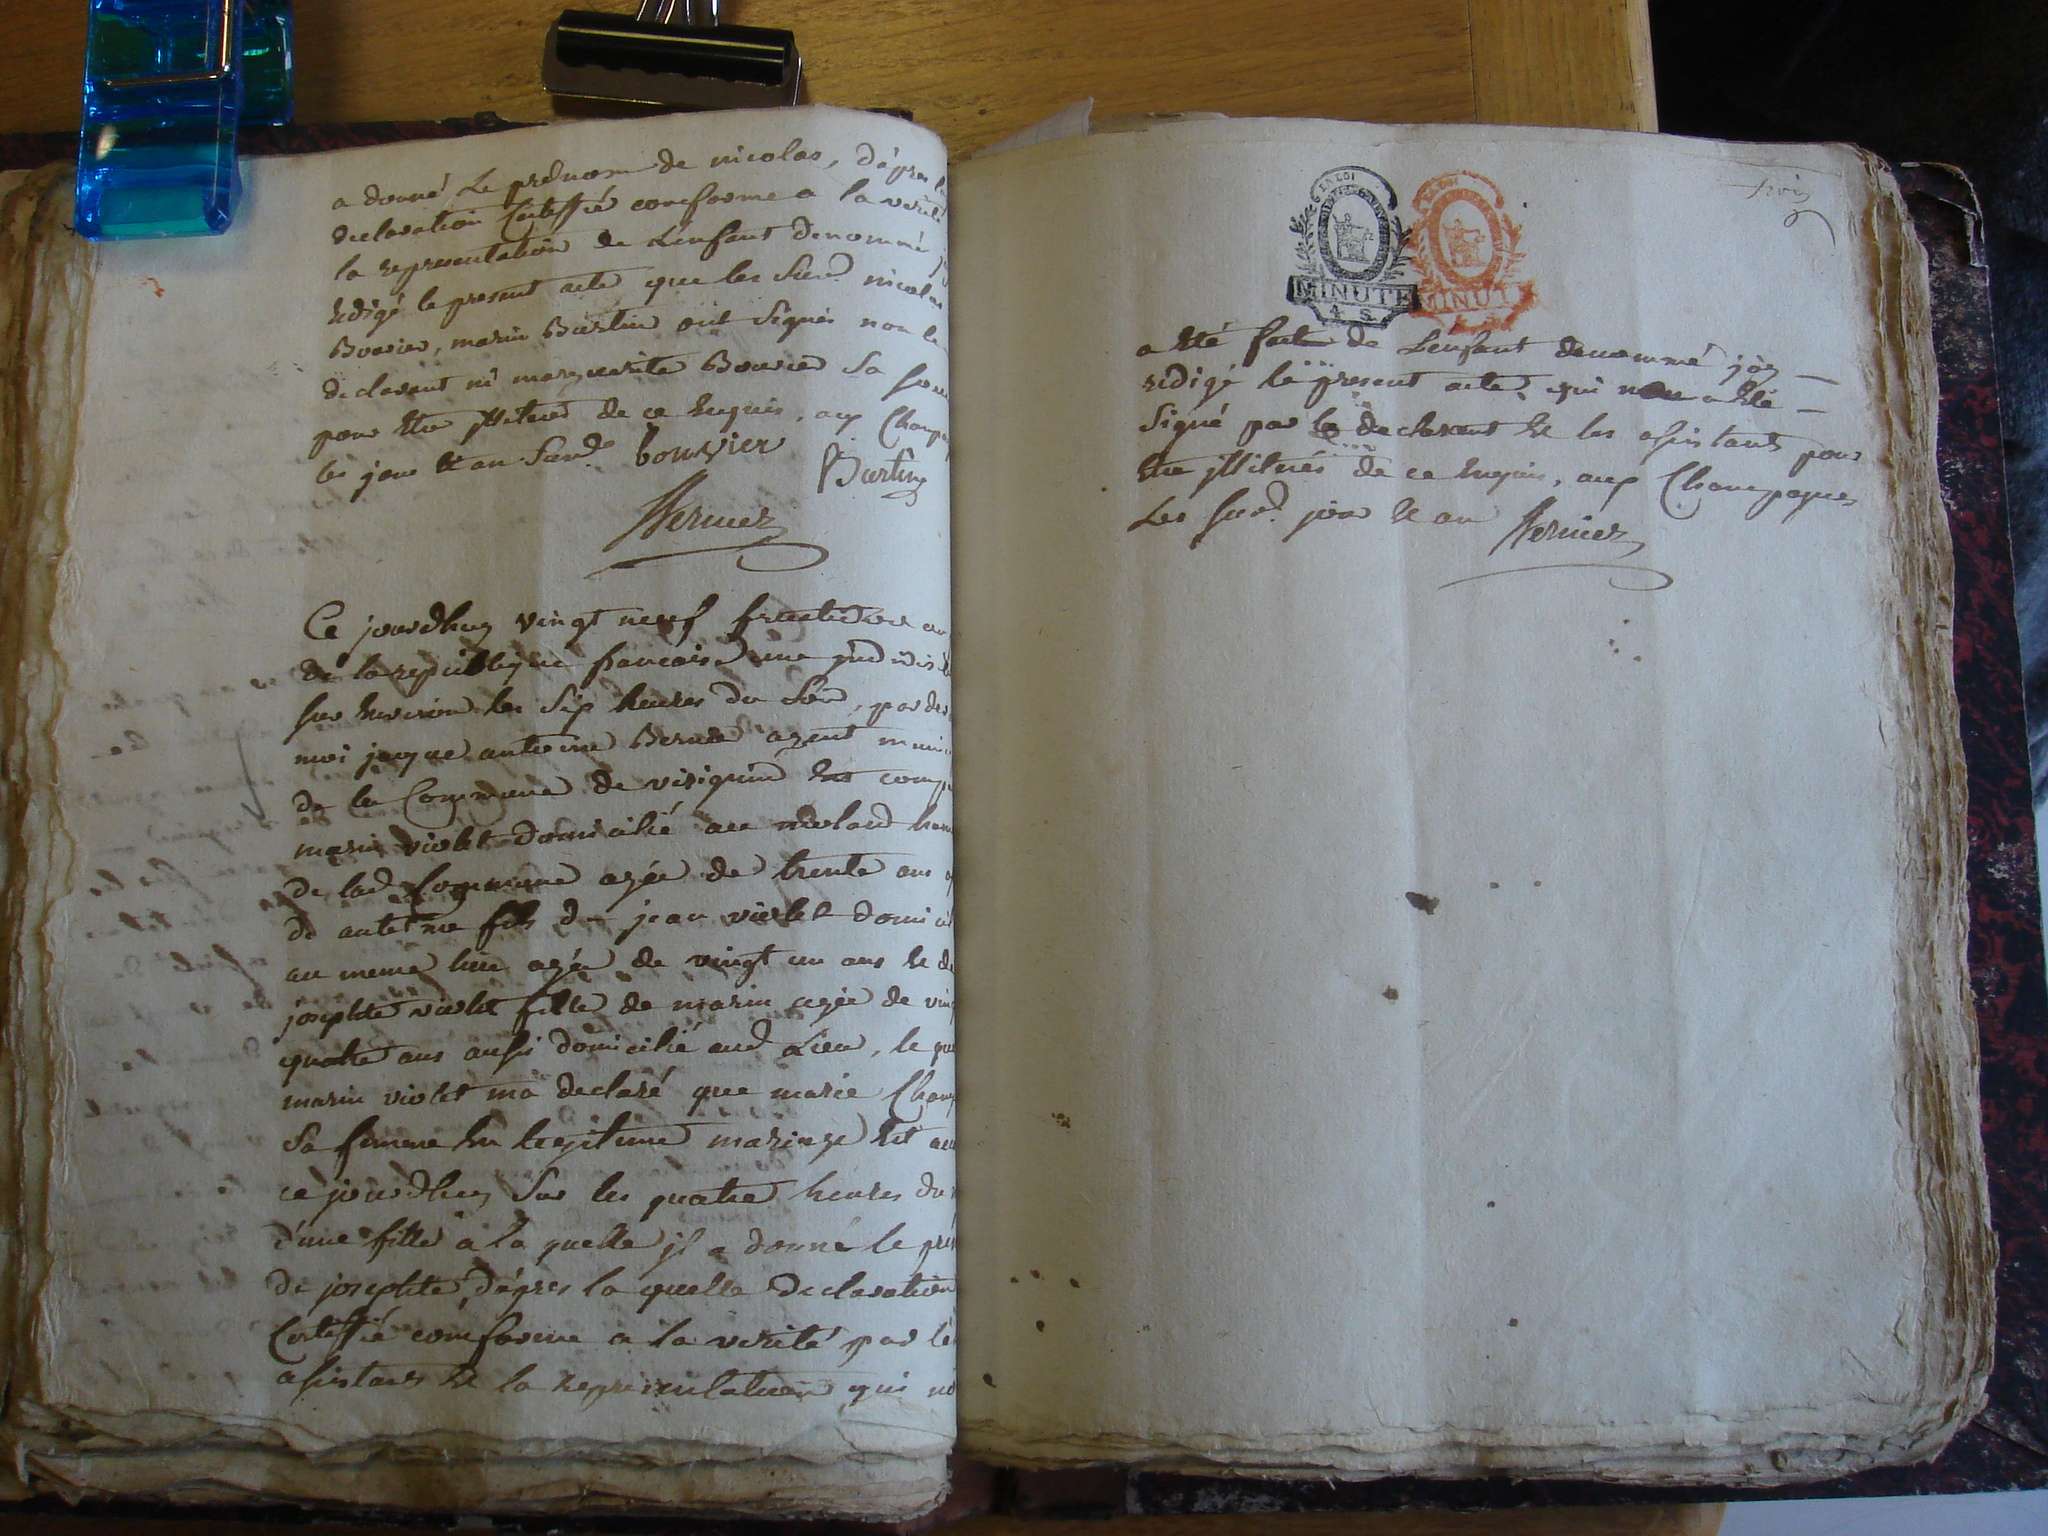 a donné Le prenom de nicolas, d'àpres la
declaration Certiffié conforme a la verité
la representation de L'enfant denommé j
redigé le present acte que les Surd. nicolas
Bouvier, marin Burtin ont Signés non le
declarant ni marguerite Bouvier Sa
pour être de ce requis, aux Champagnes
les jour et an Surd. bouvier
Burtin
Vernier
Ce jourdhuy vingt neuf fructidor an
de la republique francaise une
sur environ les Six heures du Soir, par de
moi jacque antoine agent muni
de la Commune de est comp
marin violet domicilié au molard ham
de lad. Commune agée de trente ans
de antelme fils de jean violet domicil
au meme lieu agée de vingt un ans et de
josephte violet fille de marin agée de ving
quatre ans aussi domicilié aud. Lieu, le que
marin violet ma declaré que marie Champ
Sa femme En legitime mariage Est acc
ce jourdhuy Sur les quatre heures du
d'une fille a la quelle jl a donné le pren
de josephte, d'àpres la quelle declaration
Certiffié conforme a la verité par les
assistants et la representation qui
trois
LA LOI
MINUTE
4 S
LA LOI
MINUTE
a été faite de L'enfant denommé jay
redigé le present acte, qui a été
Signé par le declarant et les assistants pour
être jllitérés de ce requis, aux Champagnes
Les Surd. jour et an Vernier